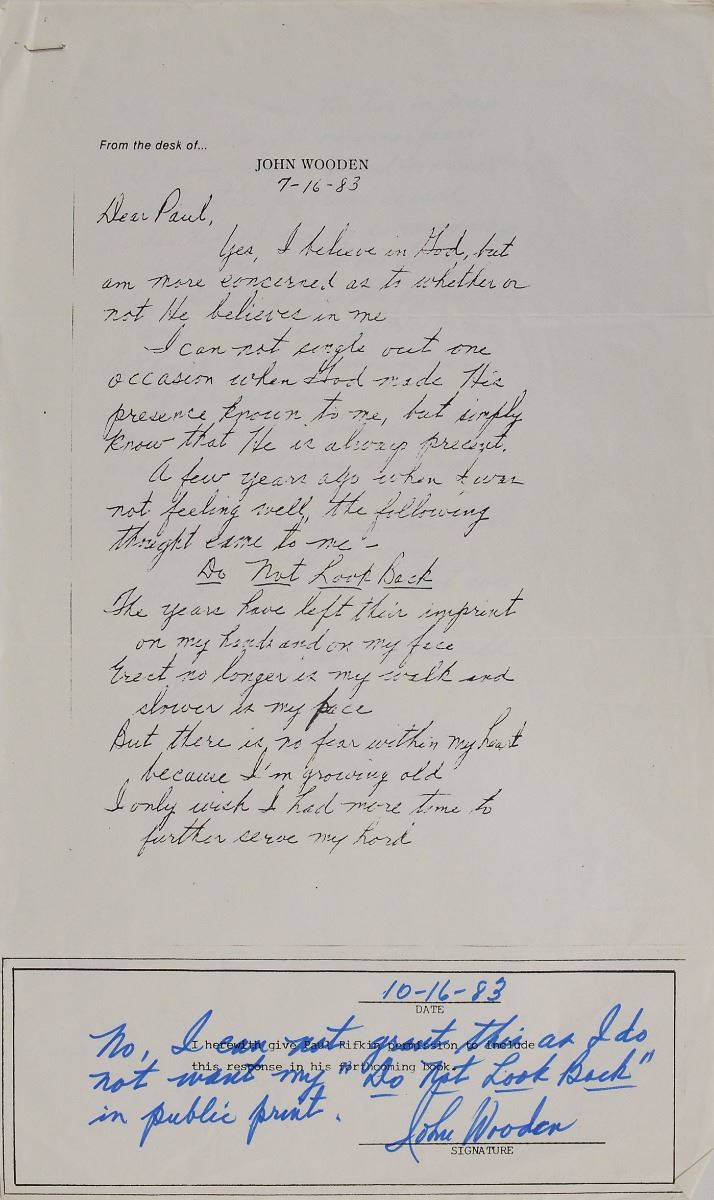 From the desk of...
JOHN WOODEN
7-16-83
Dear Paul,
Yes, I believe in God, but
am more concerned as to whether or
not He believes in me
I can not single out one
occasion when God made His
presence known to me, but simply
know that He is always present.
A few years ago when I was
not feeling well, the following
thought came to me -
Do Not Look Back
The years have left their imprint
on my hands and on my face
Erect no longer is my walk and
slower is my pace
But there is no fear within my heart
because I'm growing old
I only wish I had more time to
further serve my Lord
10-16-83
DATE
No, I can not grant this as I do
I herewith give Paul Rifkin permission to include
not want my "Do Not Look Back"
this response in his forthcoming book.
in public print.
John Wooden
SIGNATURE